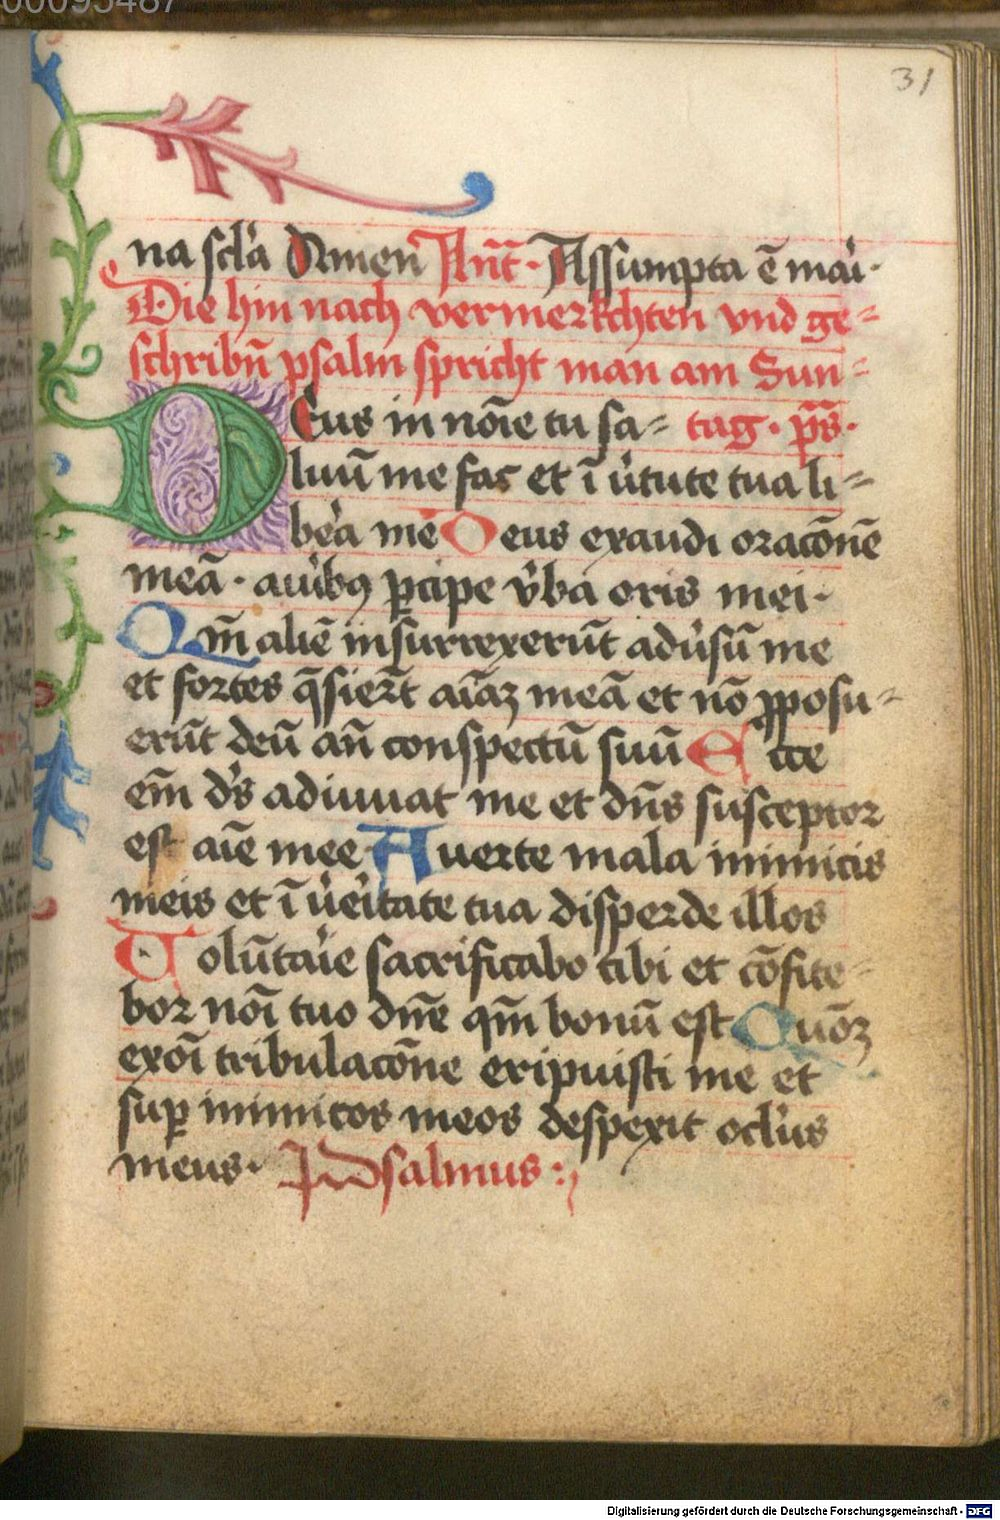 00095487
31
na sc̄la Amen Ant̄· Assumpta ē mai͛·
Die hin nach vermerkchten vnd ge=
schribn̄ psalm spricht man am Sun=
DEus in noīe tu sa= tag· ps̄·
luū me fac et ī u͛tute tua li=
be͛a me Deus exaudi oracōnē
meā· au͛ibꝯ ꝑcipe v͛ba oris mei·
Qm̄ aliē insurrexerūt adu͛sū me
et fortes q̄sier̄t aīaꝫ meā et nō ꝓposu=
erūt deū an̄ conspectū suū Ecce
em̄ ds̄ adiuuat me et dn̄s susceptor
est aīe mee Auerte mala inimicis
meis et ī u͛itate tua disperde illos
Uolūta͛ie sacrificabo tibi et cōfite=
bor noī tuo dn̄e qm̄ bonū est Quōꝫ
exoī tribulacōne eripuisti me et
suꝑ inimicos meos despexit oclu͛s
meus· Psalmus :
Digitalisierung gefördert durch die Deutsche Forschungsgemeinschaft - DFG